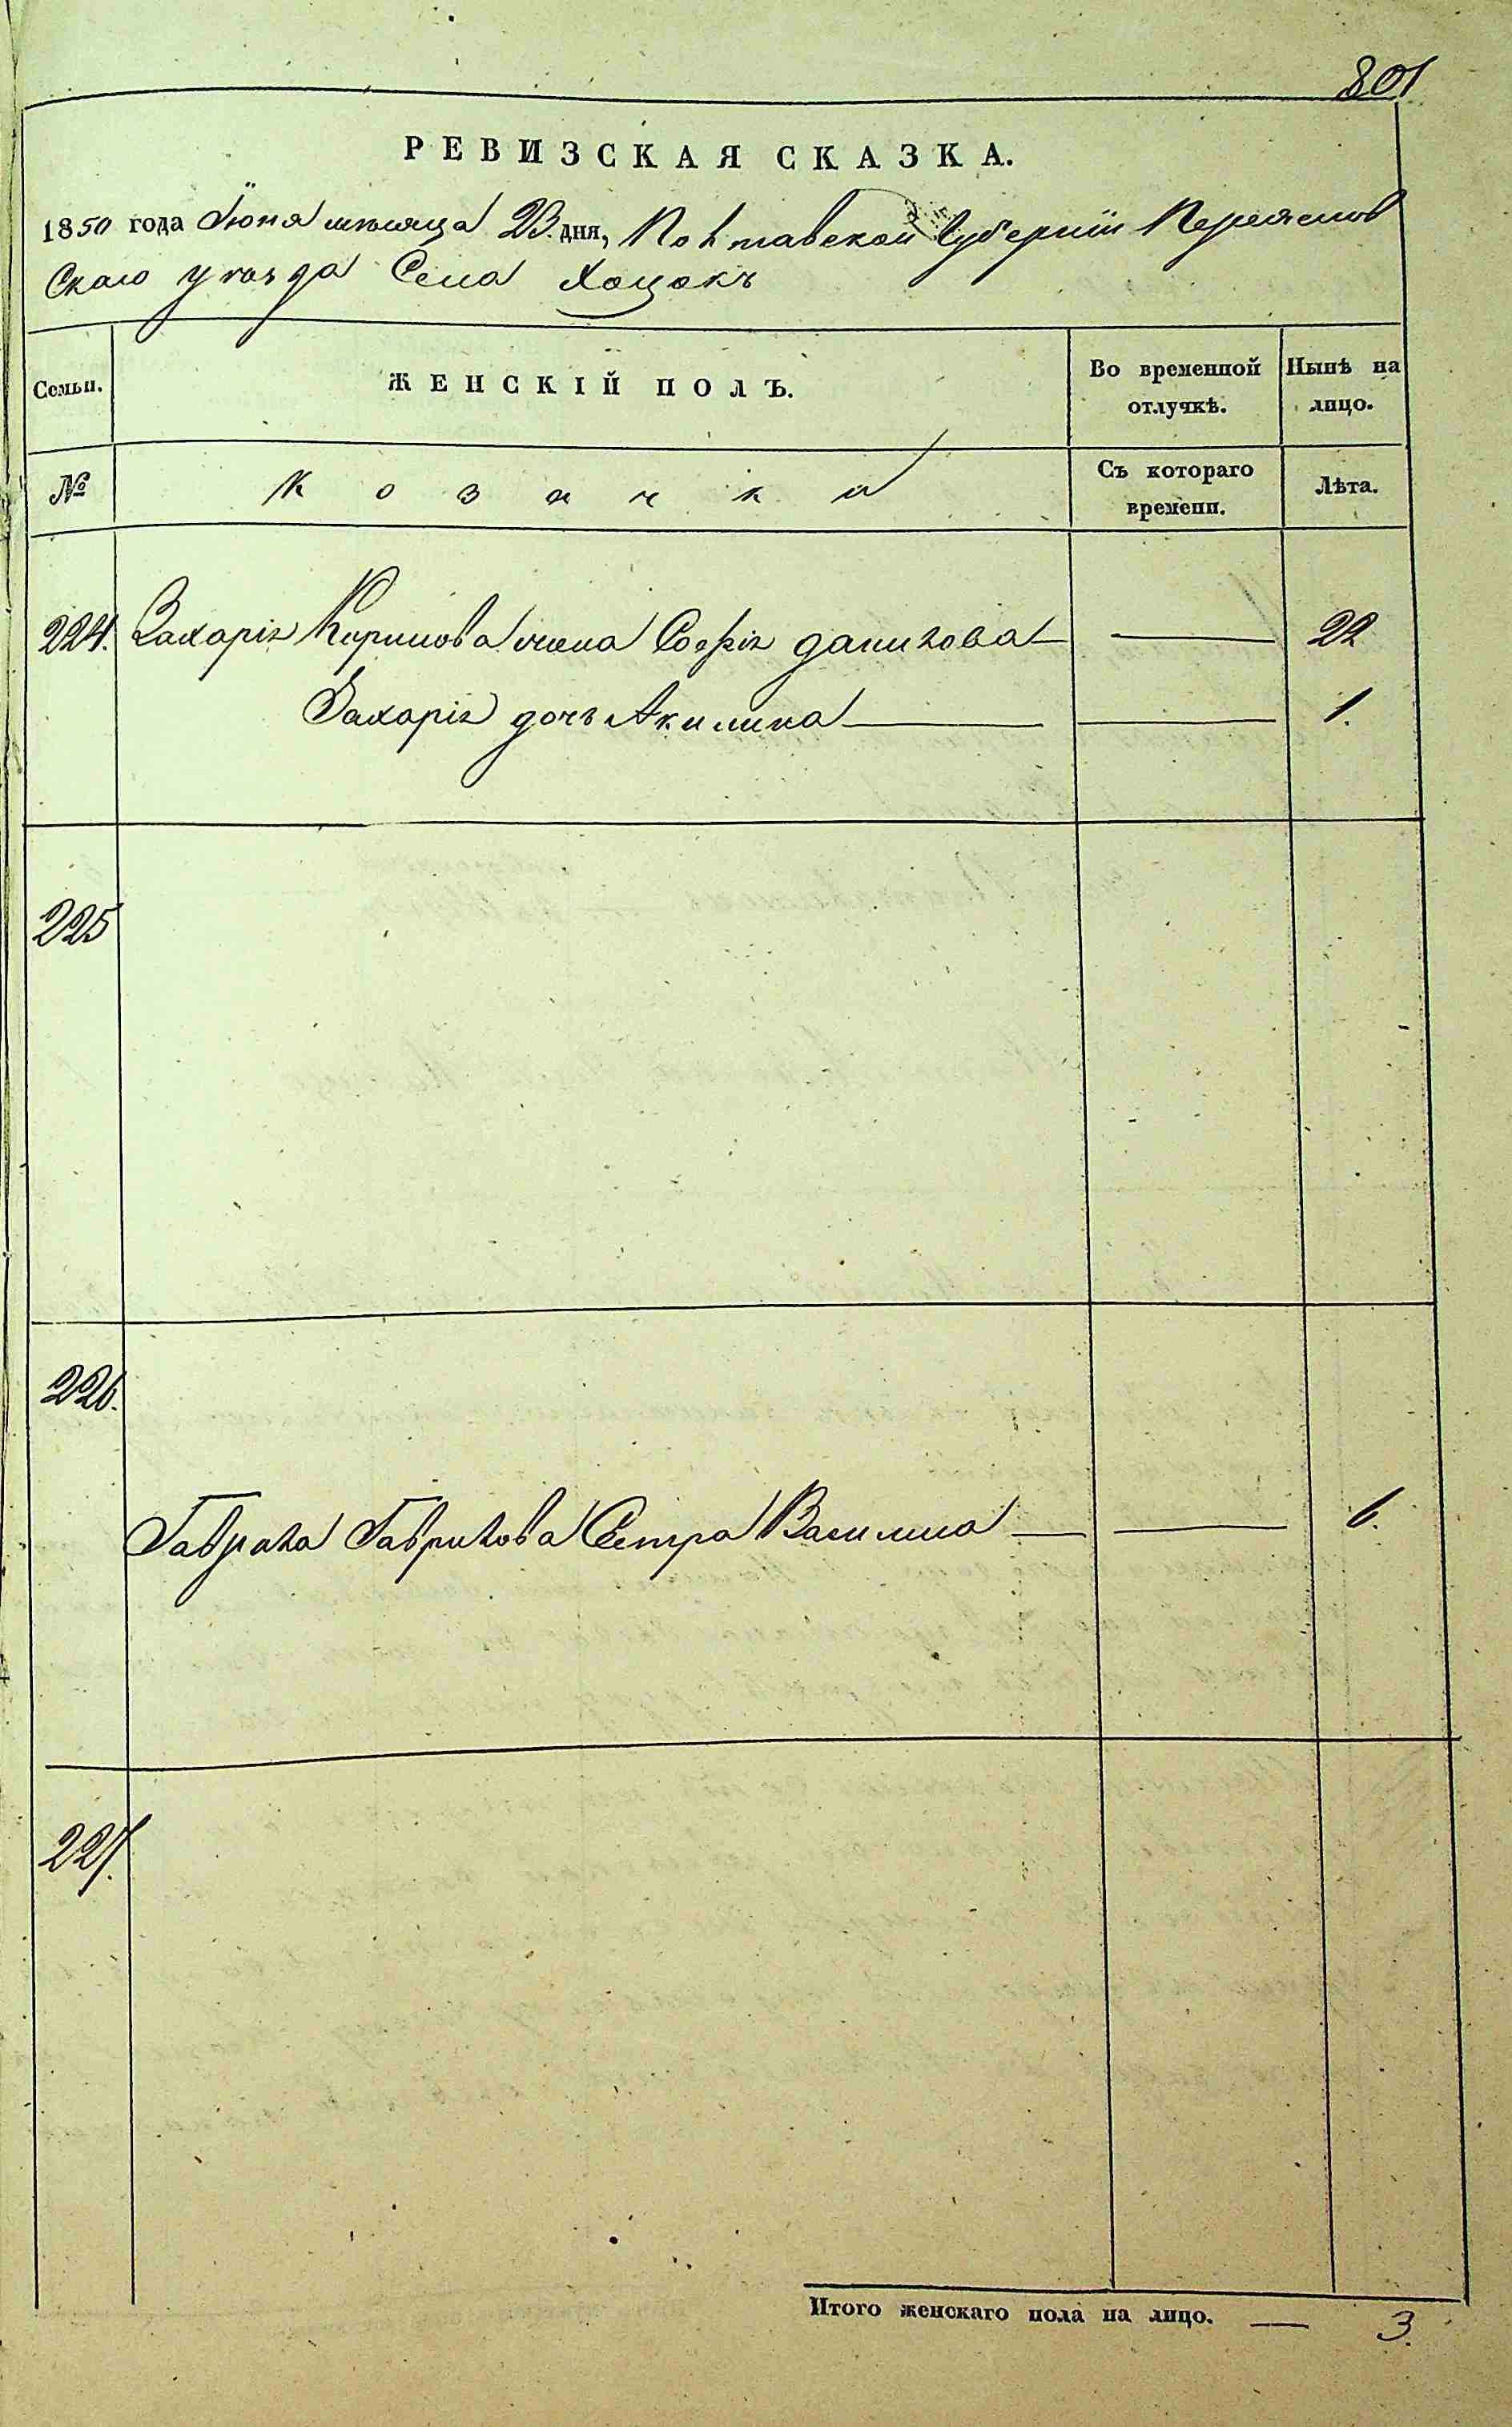 801
РЕВИЗСКАЯ СКАЗКА.
1850 года Іюня мѣсяца 23. дня, Полтавской Губерніи Переяслов
Скаго уѣзда Села Хоцокъ
Семьи. ЖЕНСКІЙ ПОЛЪ. Во временной отлучкѣ. Нынѣ на лицо.
№ Козачки Съ котораго времени. Лѣта.
224. Захарія Карпова жена Софія данилова — 22
Захарія дочь Акилина — 1.
225
226.
Гаврила Гаврилова Сестра Василиса — 6.
227.
Итого женскаго пола на лицо. — 3.